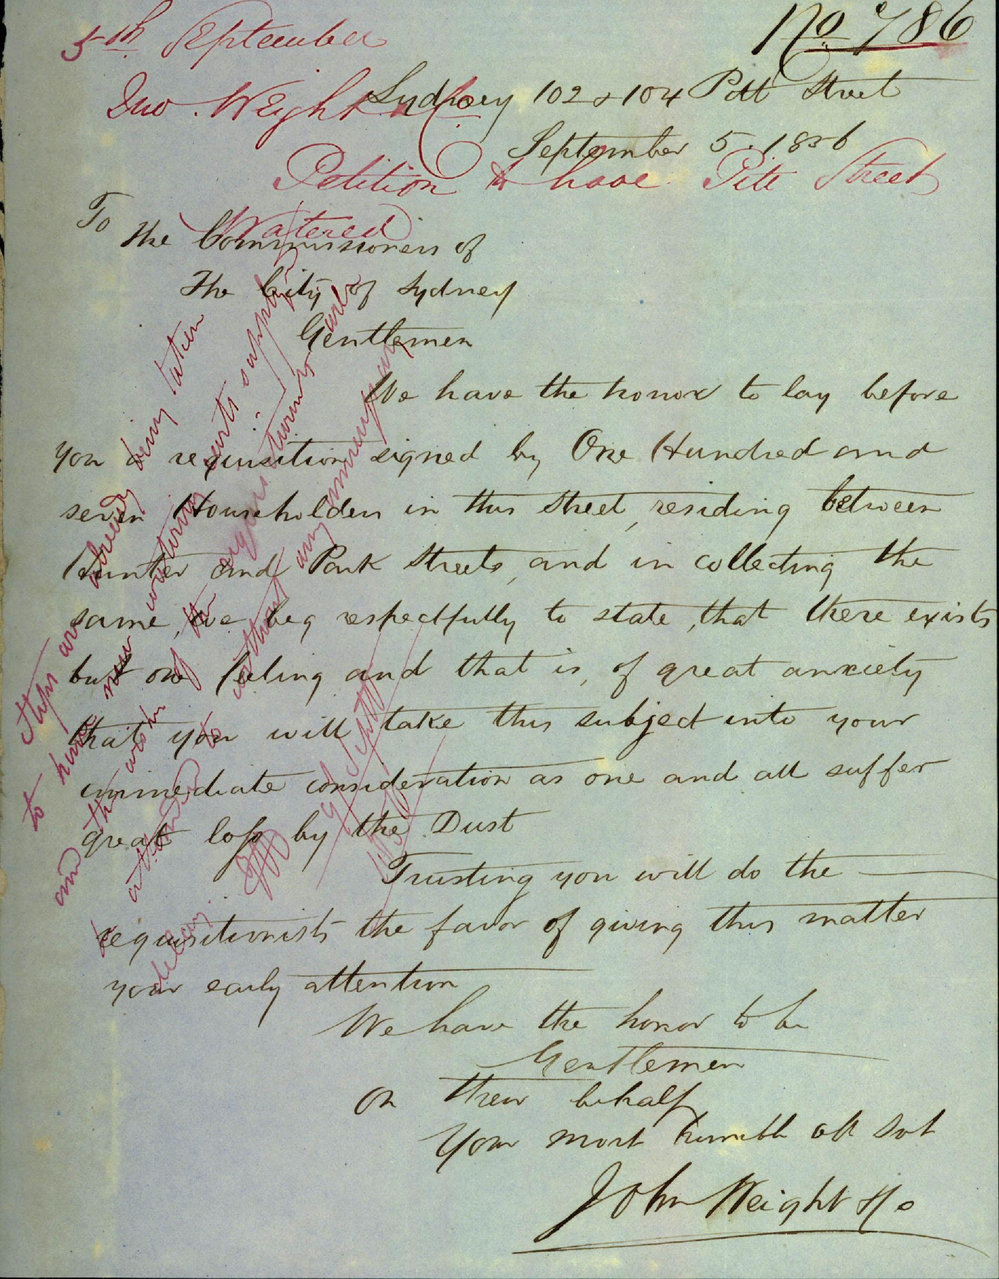 No 786
5th September
Jno. Weight & Co.
Petition to have Pitt Street
Watered
Sydney 102 & 104 Pitt Street
September 5. 1856
To
The Commissioners of
The City of Sydney
Gentlemen
We have the honor to lay before
you a requisition signed by One Hundred and
seven Householders in this Street, residing between
Hunter and Park Streets, and in collecting the
same, we beg respectfully to state, that there exists
but one feeling and that is, of great anxiety
that you will take this subject into your
immediate consideration as one and all suffer
great loss by the Dust
Trusting you will do the
requisitionists the favor of giving this matter
your early attention
We have the honor to be
Gentlemen
On their behalf
Your most humble obt Svt
John Weight & Co
Steps are already being taken
to have new watering carts supplied
and the wish of the requisitionists will
be attended to without any unnecessary
delay.
9 Septr
1856